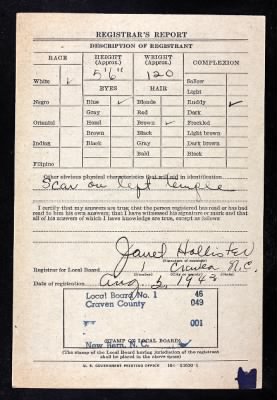 REGISTRAR'S REPORT
DESCRIPTION OF REGISTRANT
RACE HEIGHT (Approx.) WEIGHT (Approx.) COMPLEXION
5'6" 120
White ✓ Sallow
EYES HAIR Light
Negro Blue ✓ Blonde Ruddy ✓
Gray Red Dark
Oriental Hazel Brown ✓ Freckled
Brown Black Light brown
Indian Black Gray Dark brown
Bald Black
Filipino
Other obvious physical characteristics that will aid in identification
Scar on left temple
I certify that my answers are true; that the person registered has read or has had
read to him his own answers; that I have witnessed his signature or mark and that
all of his answers of which I have knowledge are true, except as follows:
Hollister
(Signature of registrar)
Registrar for Local Board 1 Craven N.C.
(Number) (City or county) (State)
Date of registration Aug 2, 1948
Local Board No. 1 45
Craven County 049
001
(STAMP OF LOCAL BOARD)
New Bern, N. C.
(The stamp of the Local Board having jurisdiction of the registrant
shall be placed in the above space.)
U. S. GOVERNMENT PRINTING OFFICE